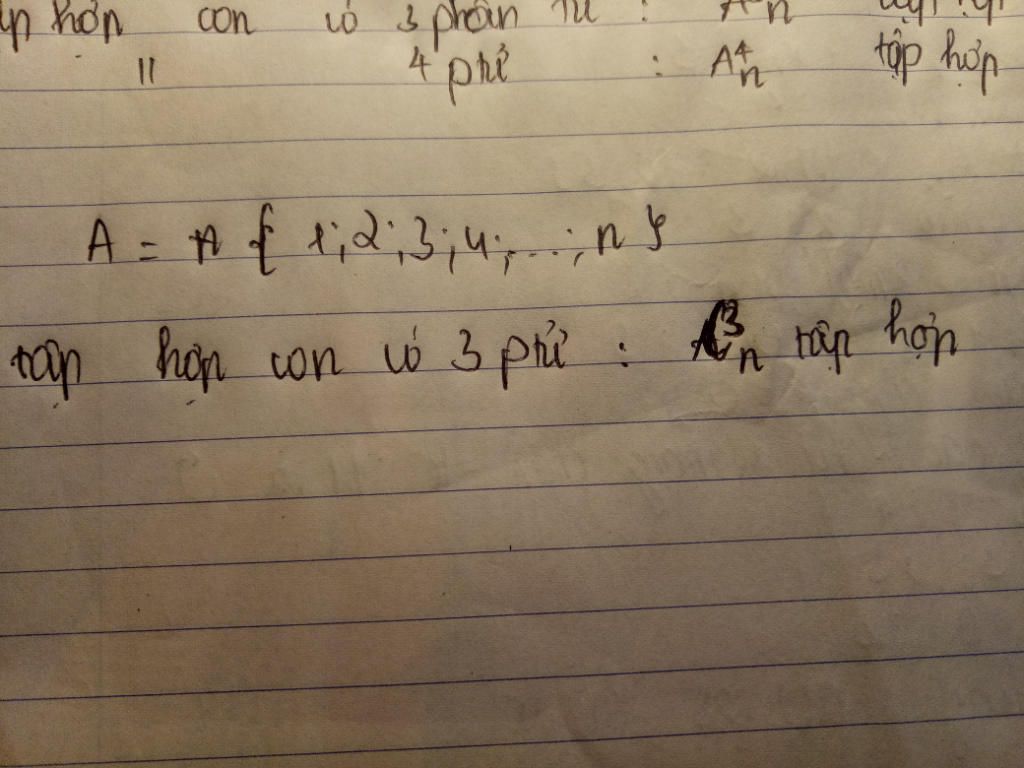 hợp con có 3 phần tử : A³n tập hợp
" 4 ptử : A⁴n tập hợp
A = { 1; 2; 3; 4; ...; n }
tập hợp con có 3 ptử : C³n tập hợp